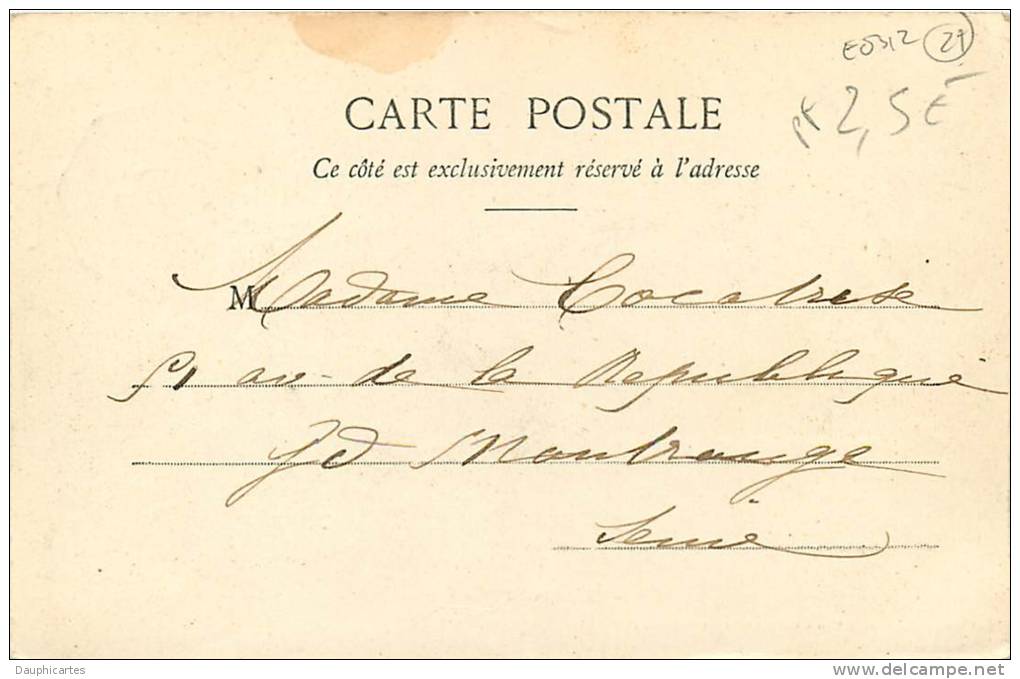 E0312 27
2,5 €
CARTE POSTALE
Ce côté est exclusivement réservé à l'adresse
Madame Cocatrix
51 av. de la Republique
Gd Montrouge
Seine
Dauphicartes
www.delcampe.net